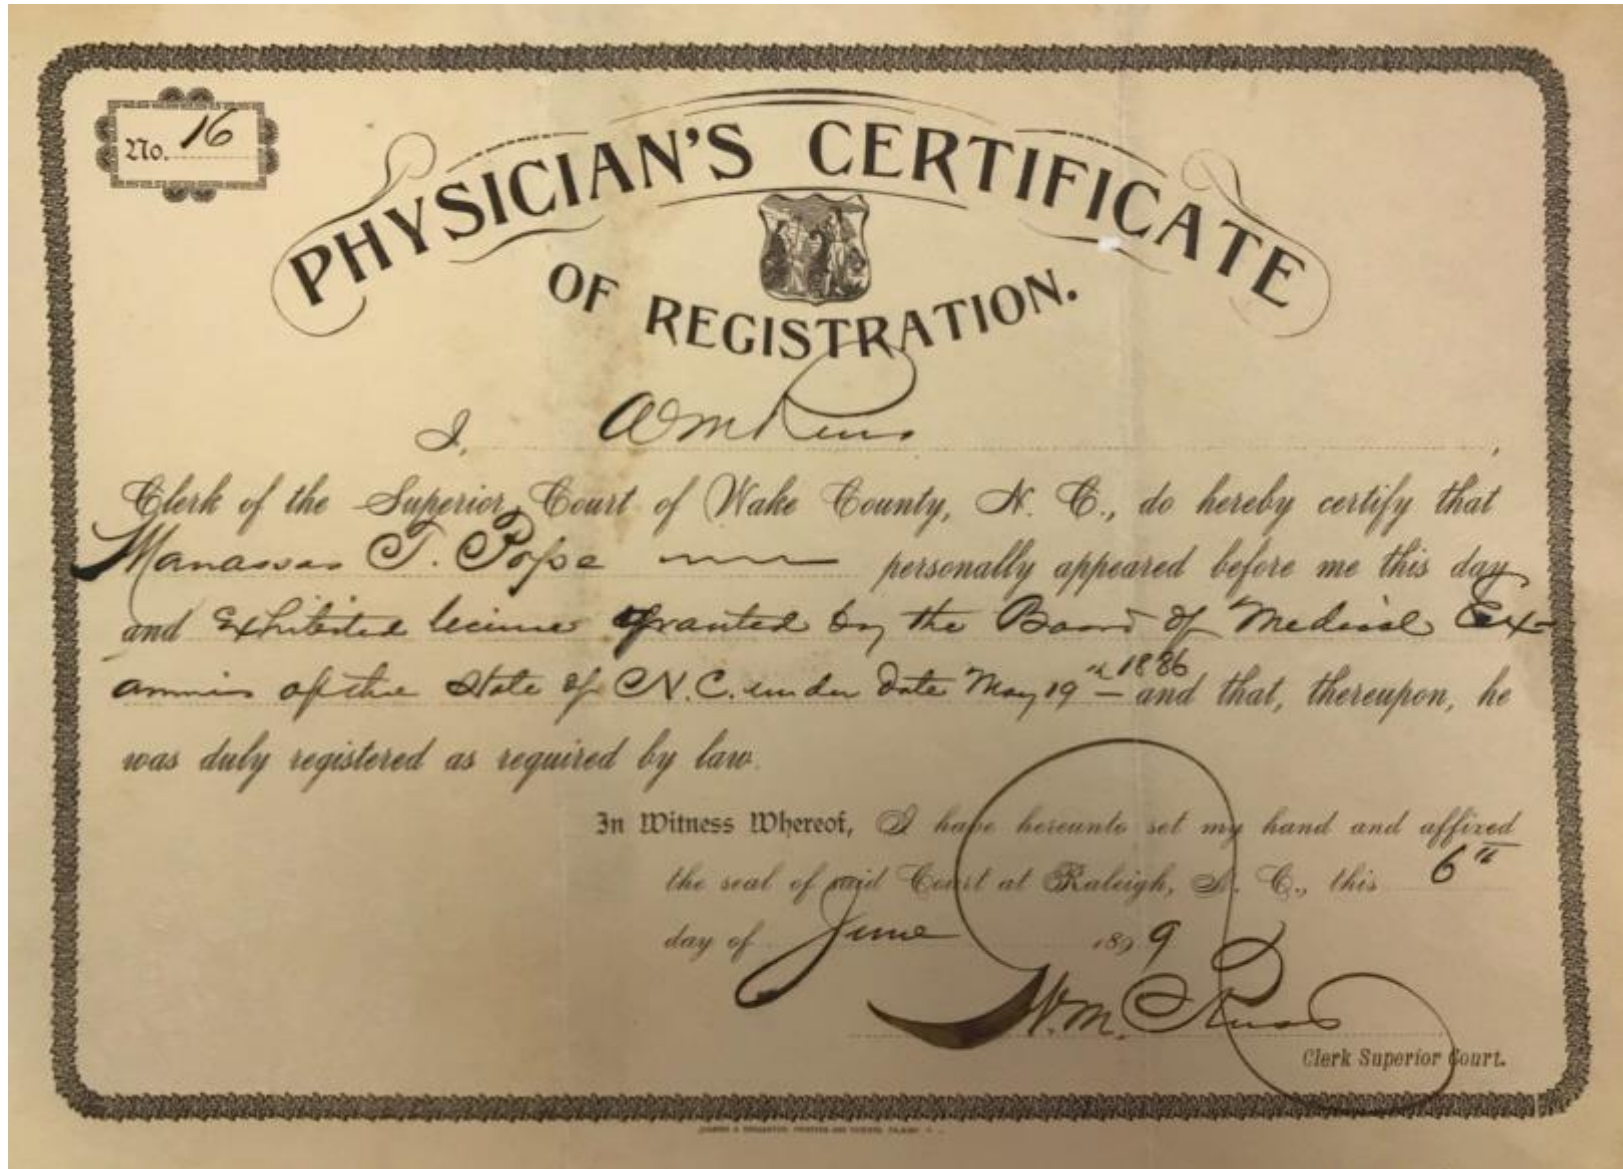 No. 16
PHYSICIAN'S CERTIFICATE
OF REGISTRATION.
I, Wm Russ,
Clerk of the Superior Court of Wake County, N. C., do hereby certify that
Manassas T. Pope personally appeared before me this day
and exhibited license granted by the Board of Medical Ex-
of the State of N.C. under date May 19th 1886 and that, thereupon, he
was duly registered as required by law.
In Witness Whereof, I have hereunto set my hand and affixed
the seal of said Court at Raleigh, N. C., this 6th
day of June 1899
W.M. Russ
Clerk Superior Court.